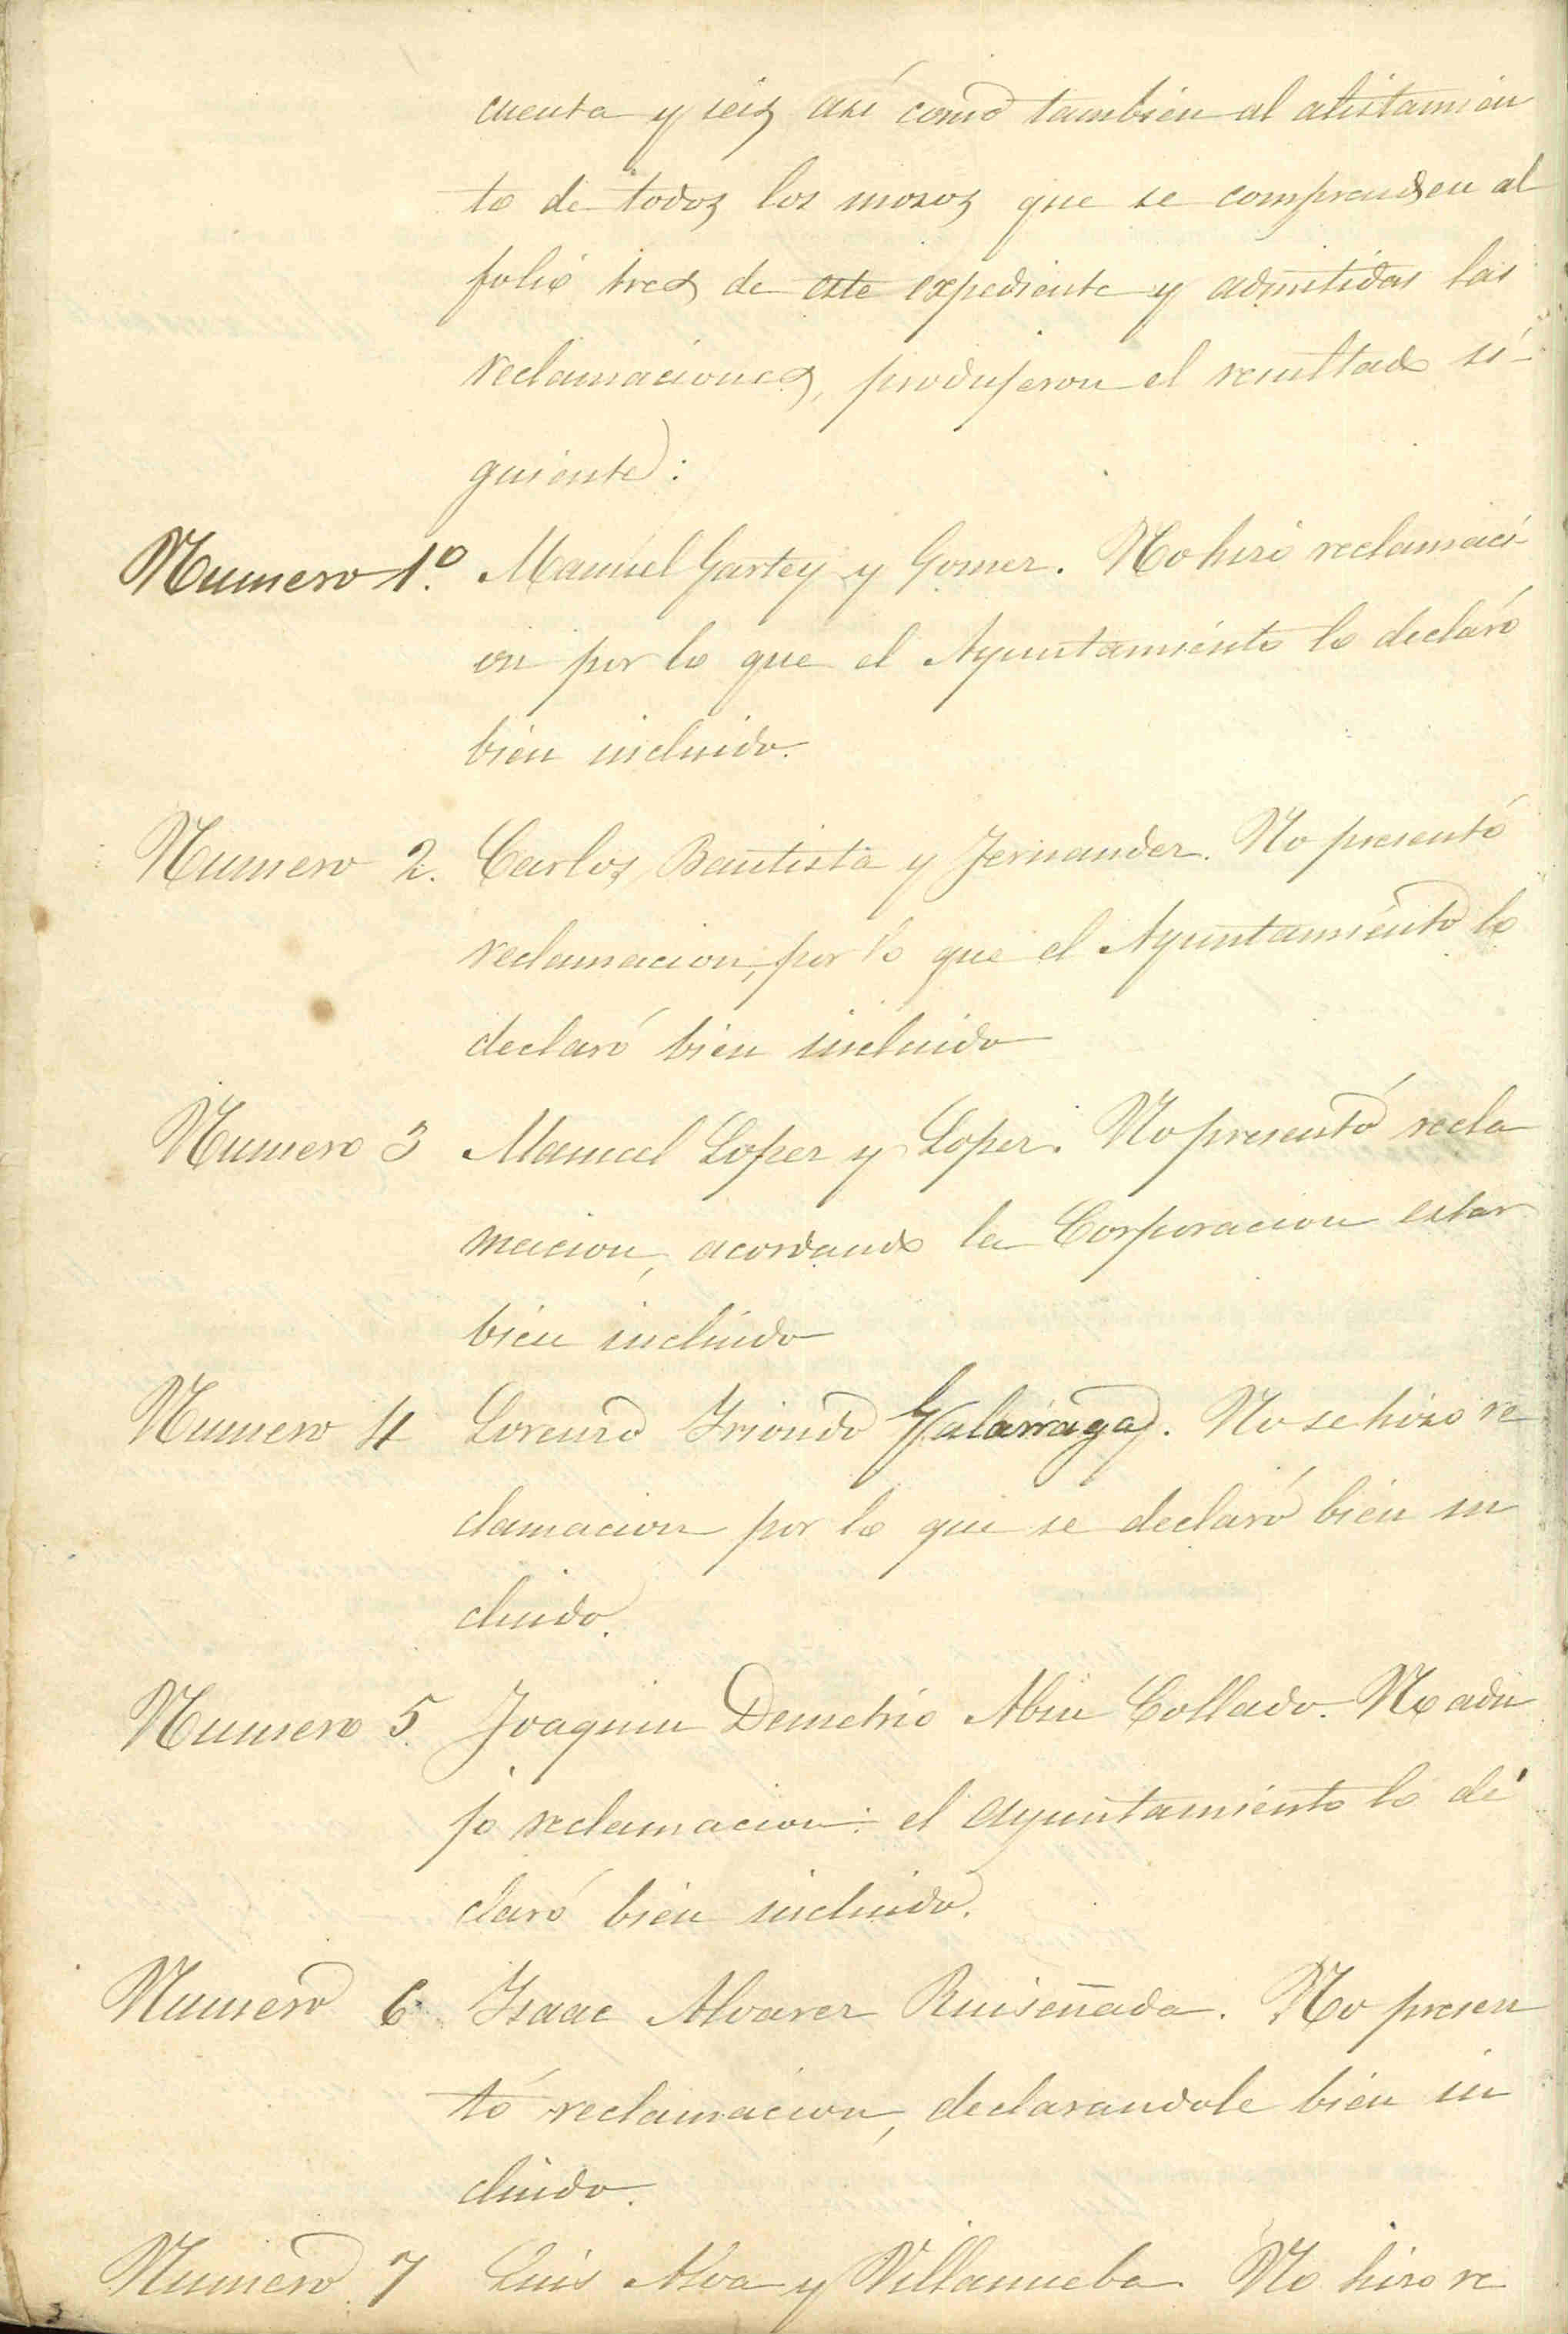 cuenta y seis asi como tambien al alistamien
to de todos los mosos que se comprenden al
folio tres de este expediente y admitidas las
reclamaciones, produjeron el resultado si-
guiente:
Numero 1º. Manuel Gartey y Gomez. No hizo reclamaci-
on por lo que el Ayuntamiento lo declaró
bien incluido.
Numero 2. Carlos Bautista y Fernandez. No presentó
reclamacion, por lo que el Ayuntamiento lo
declaró bien incluido
Numero 3 Manuel Lopez y Lopez. No presentó recla
macion, acordando la Corporacion estar
bien incluido
Numero 4 Lorenzo Iriondo Galarraga. No se hizo re
clamacion por lo que se declaró bien in
cluido.
Numero 5. Joaquin Demetrio Abin Collado. No adu
jo reclamacion: el Ayuntamiento lo de
claró bien incluido.
Numero 6. Isaac Alvarez Ruiseñada. No presen
tó reclamacion, declarandole bien in
cluido.
Numero 7 Luis Alva y Villanueba. No hizo re